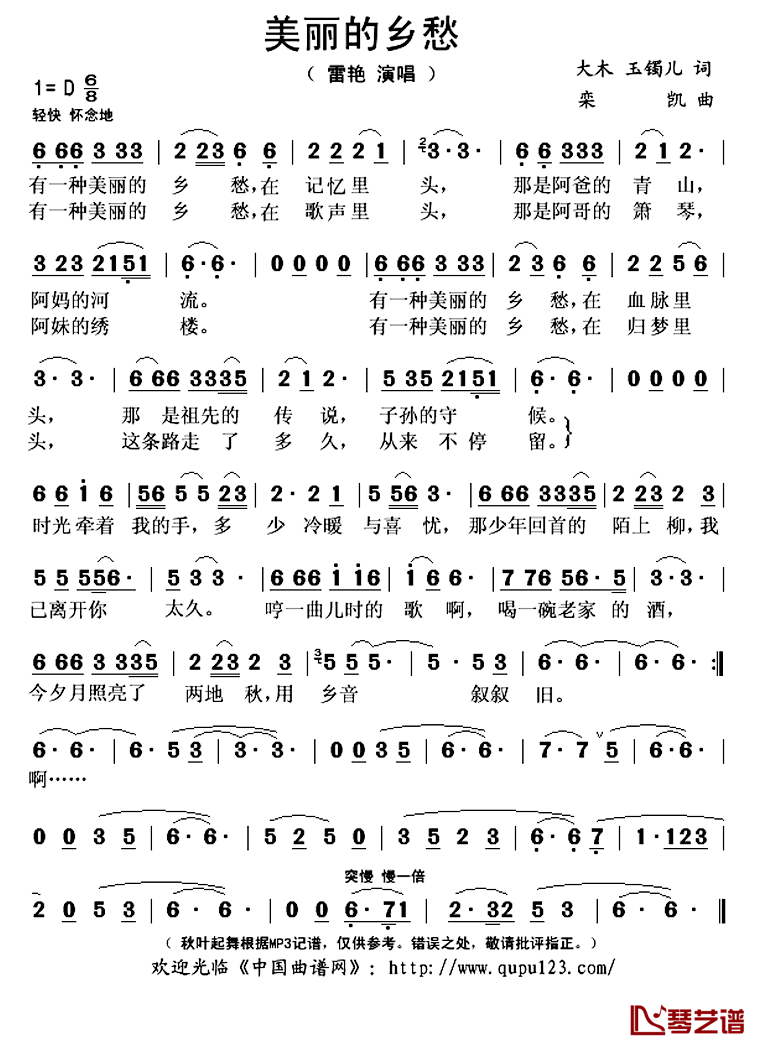 美丽的乡愁
（ 雷艳 演唱 ）
大木 玉镯儿 词
1= D 6/8
栾 凯 曲
轻快 怀念地
6 66 3 33 | 2 23 6 6 | 2 2 2 1 | 2 3· 3· | 6 6 333 | 2 1 2· |
有一种美丽的 乡 愁,在 记忆里 头, 那是阿爸的 青 山,
有一种美丽的 乡 愁,在 歌声里 头, 那是阿哥的 箫 琴,
3 23 2151 | 6· 6· | 0 0 0 0 | 6 66 3 33 | 2 23 6 6 | 2 2 5 6 |
阿妈的河 流。 有一种美丽的 乡 愁,在 血脉里
阿妹的绣 楼。 有一种美丽的 乡 愁,在 归梦里
3· 3· | 666 3335 | 2 1 2· | 5 35 2151 | 6· 6· | 0 0 0 0 |
头, 那 是祖先的 传 说, 子孙的守 候。
头, 这条路走 了 多 久, 从来 不停 留。
6 6 1 6 | 56 5 5 23 | 2· 2 1 | 5 56 3· | 666 3335 | 2 23 2 3 |
时光牵着 我的手,多 少冷暖 与喜忧,那少年回首的 陌上柳,我
5 5 556· | 5 3 3· | 6 66 1 16 | 6· 6· | 7 76 56· 5 | 3· 3· |
已离开你 太久。 哼一曲儿时的 歌 啊, 喝一碗老家 的 酒,
6 66 3 335 | 2 23 2 3 | 3 5 5 5· | 5· 5 3 | 6· 6· | 6· 6· :||
今夕月照亮了 两地 秋,用 乡音 叙叙 旧。
6· 6· | 6· 5 3 | 3· 3· | 0 0 3 5 | 6· 6· | 7· 7 5 | 6· 6· |
啊……
0 0 3 5 | 6· 6· | 5 2 5 0 | 3 5 2 3 | 6· 6 7 | 1·123 |
突慢 慢一倍
2 0 5 3 | 6· 6· | 0 0 6· 71 | 2· 32 5 3 | 6· 6· | 6· 6· ||
（ 秋叶起舞根据MP3记谱，仅供参考。错误之处，敬请批评指正。）
欢迎光临《中国曲谱网》：http://www.qupu123.com/
琴艺谱